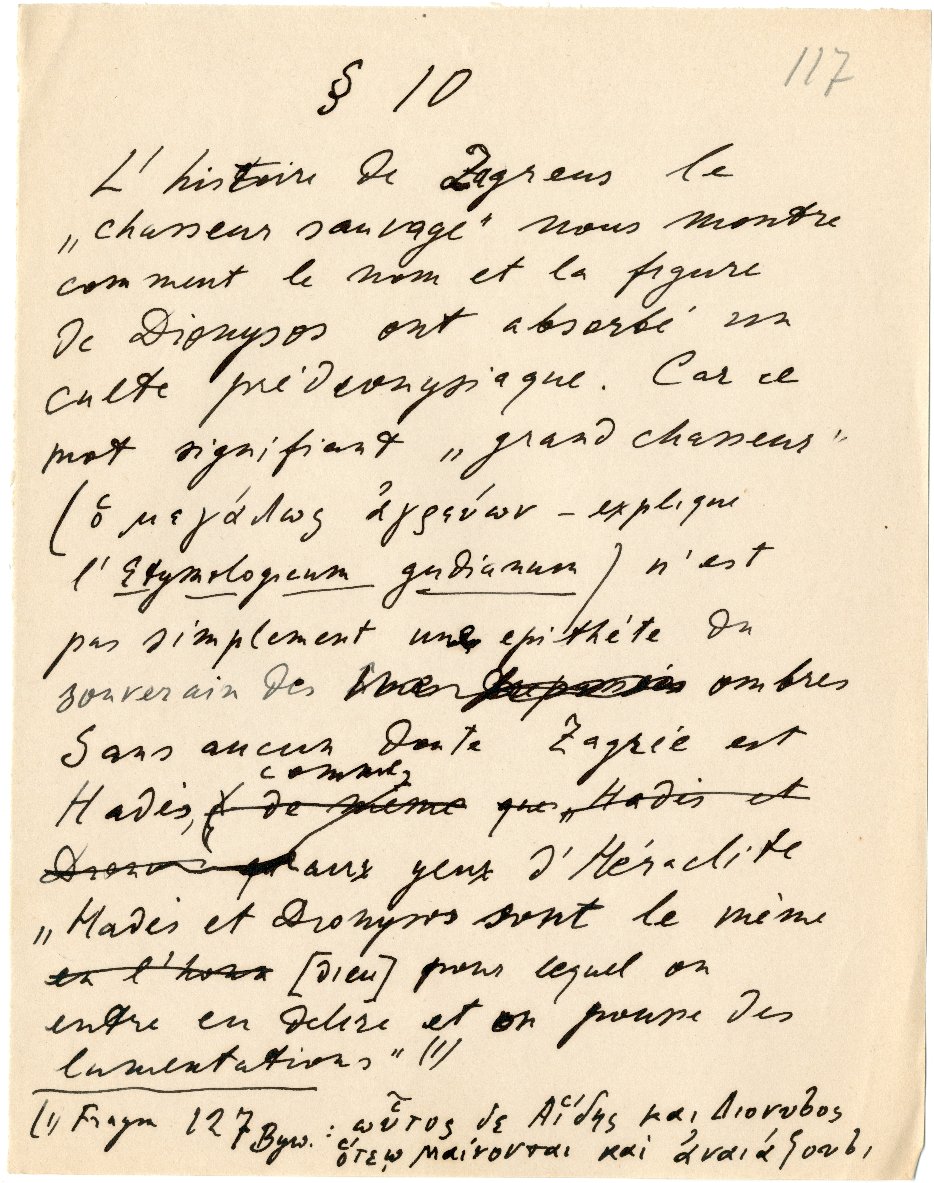 117
§ 10
L'histoire de Zagreus le
„chasseur sauvage" nous montre
comment le nom et la figure
de Dionysos ont absorbé un
culte prédionysiaque. Car ce
mot signifiant „grand chasseur"
(ὁ μεγάλως ἀγρεύων – explique
l'Etymologicum gudianum) n'est
pas simplement une epithéte du
souverain des ombres
Sans aucun doute Zagrée est
comme
Hadès, de même que „Hadès et
aux yeux d'Héraclite
„Hadès et Dionysos sont le même
en l'honn [dieu] pour lequel on
entre en delire et on pousse des
lamentations" (1)
(1) Fragm 127 Byw.: ωὗτος δε Αἵδης και Διονυσος
ὅτεῳ μαίνονται καί